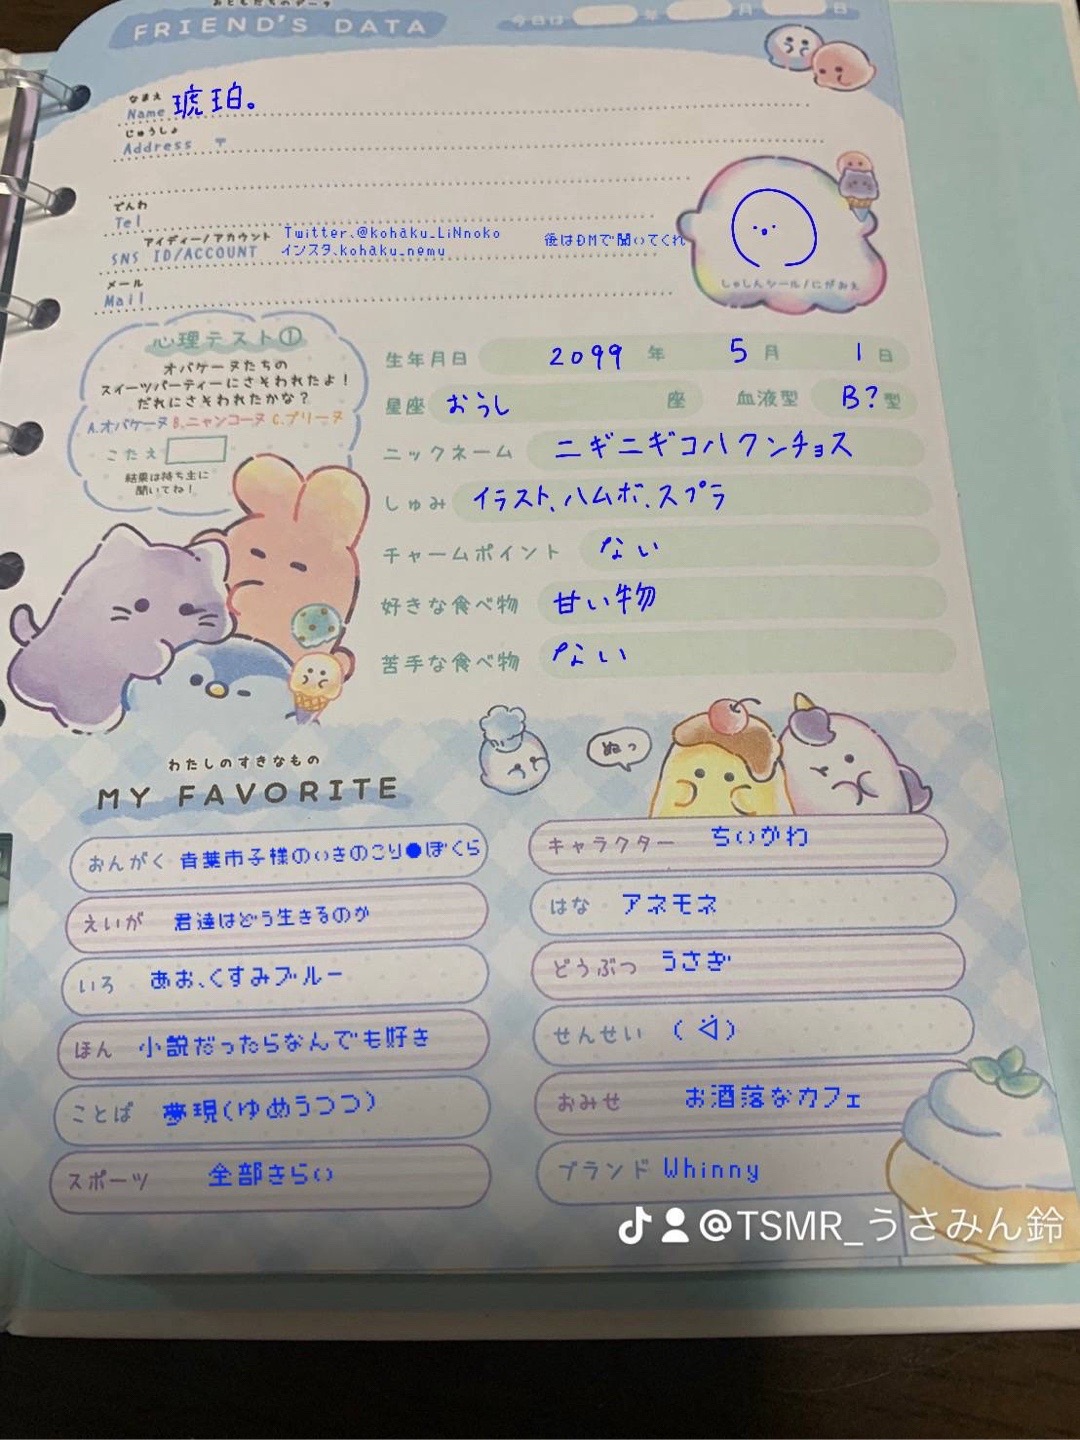 おともだちのデータ
FRIEND'S DATA
今日は 年 月 日
なまえ
Name 琥珀。
じゅうしょ
Address 〒
でんわ
Tel
アイディー/アカウント
SNS ID/ACCOUNT
Twitter、@kohaku_LiNnoko
インスタ、kohaku_nemu
後はDMで聞いてくれ
メール
Mail
しゃしんシール/にがおえ
心理テスト①
オバケーヌたちの
スイーツパーティーにさそわれたよ!
だれにさそわれたかな?
A.オバケーヌ B.ニャンコーヌ C.プリーヌ
こたえ
結果は持ち主に
聞いてね!
生年月日 2099 年 5 月 1 日
星座 おうし 座 血液型 B? 型
ニックネーム ニギニギコハクンチョス
しゅみ イラスト、ハムボ、スプラ
チャームポイント ない
好きな食べ物 甘い物
苦手な食べ物 ない
わたしのすきなもの
MY FAVORITE
ぬっ
おんがく 青葉市子様のいきのこり●ぼくら
えいが 君達はどう生きるのか
いろ あお、くすみブルー
ほん 小説だったらなんでも好き
ことば 夢現(ゆめうつつ)
スポーツ 全部きらい
キャラクター ちいかわ
はな アネモネ
どうぶつ うさぎ
せんせい
おみせ お洒落なカフェ
ブランド Whinny
@TSMR_うさみん鈴